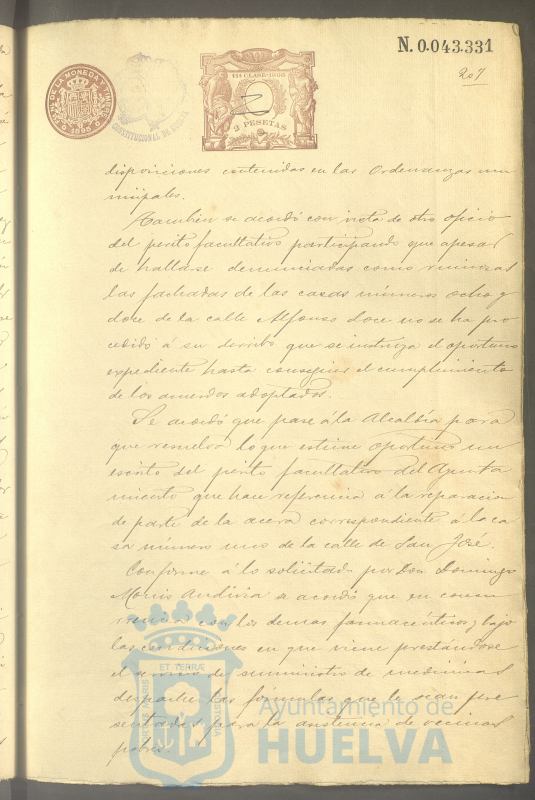 N. 0.043.331
207
11ª CLASE. 1895
2 PESETAS
1895
CONSTITUCIONAL DE HUELVA
disposiciones contenidas en las Ordenanzas mu
nicipales.
Tambien se acordó con vista de otro oficio
del perito facultativo participando que apesar
de hallarse denunciadas como ruinosas
las fachadas de las casas números ocho y
doce de la calle Alfonso doce no se ha pro
cedido á su derribo que se instruya el oportuno
expediente hasta conseguir el cumplimiento
de los acuerdos adoptados.
Se acordó que pase á la Alcaldía para
que resuelva lo que estime oportuno un
escrito del perito facultativo del Ayunta
miento que hace referencia á la reparacion
de parte de la acera correspondiente á la ca
sa número uno de la calle de San José.
Conforme á lo solicitado por Don Domingo
se acordó que en concu
rrencia con los demas farmacéuticos y bajo
las condiciones en que viene prestándose
el servicio de suministro de medicinas
despache las fórmulas que le sean pre
sentadas para la asistencia de vecinos
pobres.
ET TERRÆ
Ayuntamiento de
HUELVA